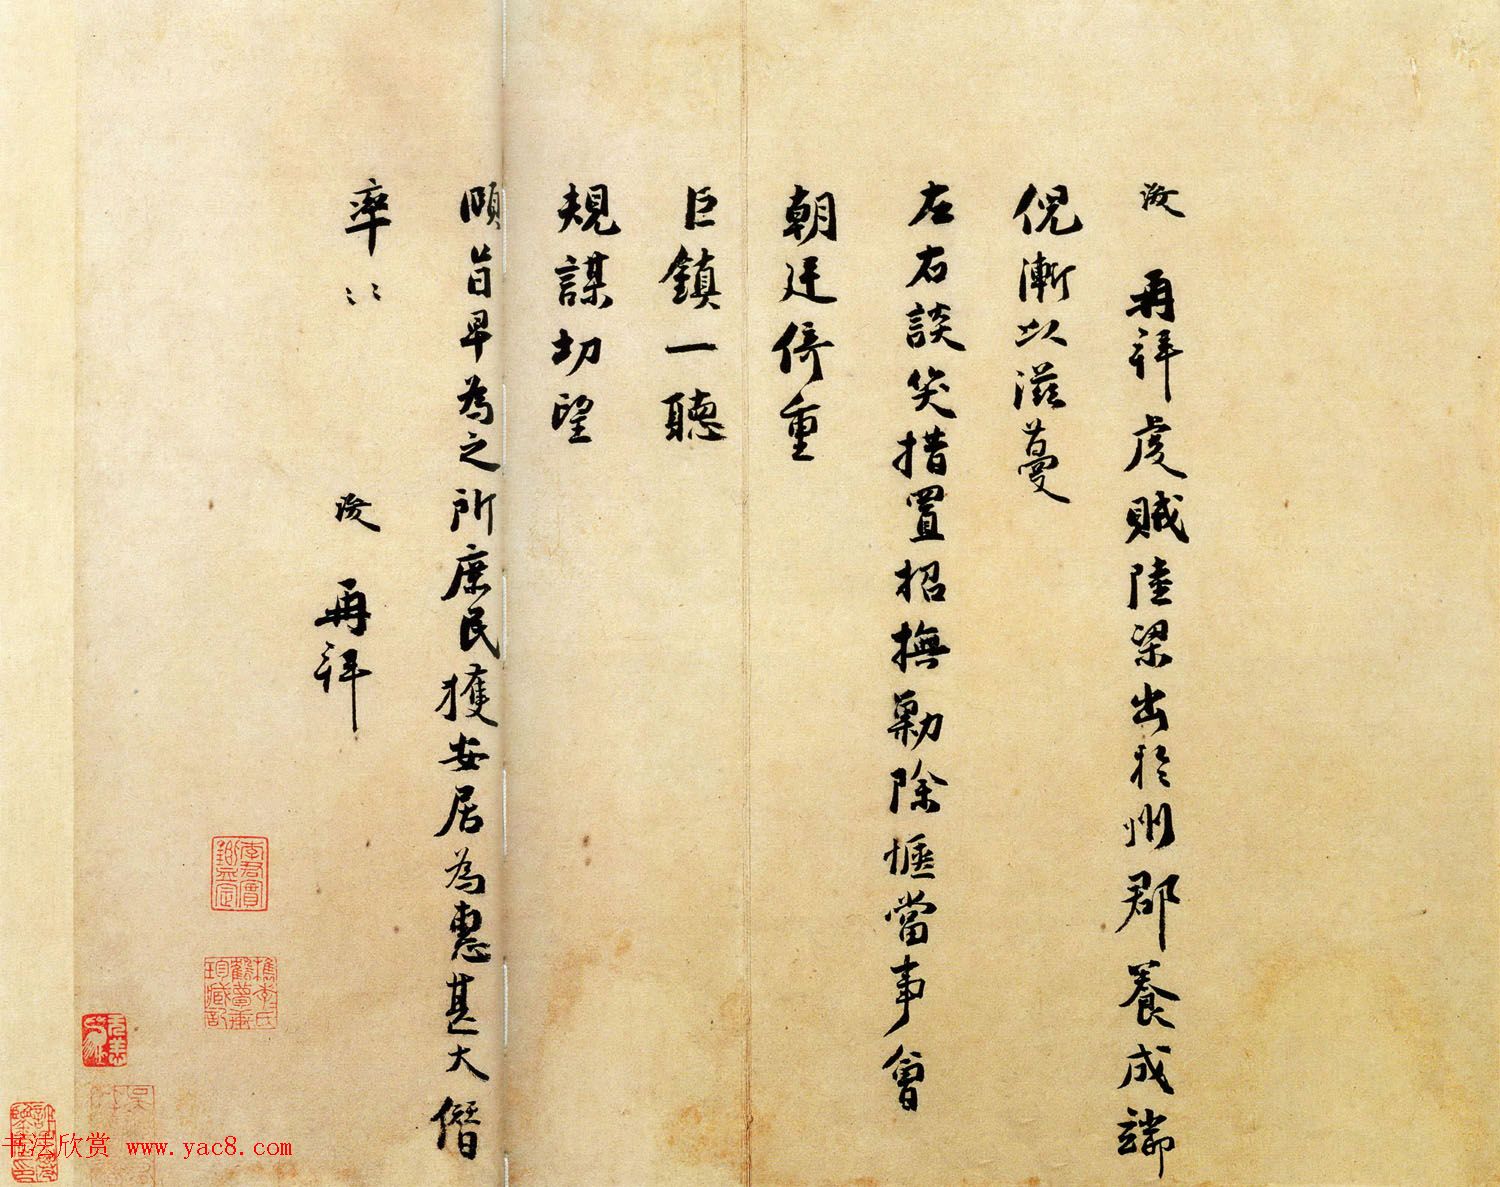 浚再拜虔賊陸梁出於州郡養成端
倪漸以滋蔓
左右談笑措置招撫勦除愜當事會
朝廷倚重
巨鎮一聽
規謀切望
頤旨早為之所庶民獲安居為惠甚大僭
率〻
浚再拜
李君實鑒定
檇李氏鶴夢軒珍藏記
书法欣赏 www.yac8.com